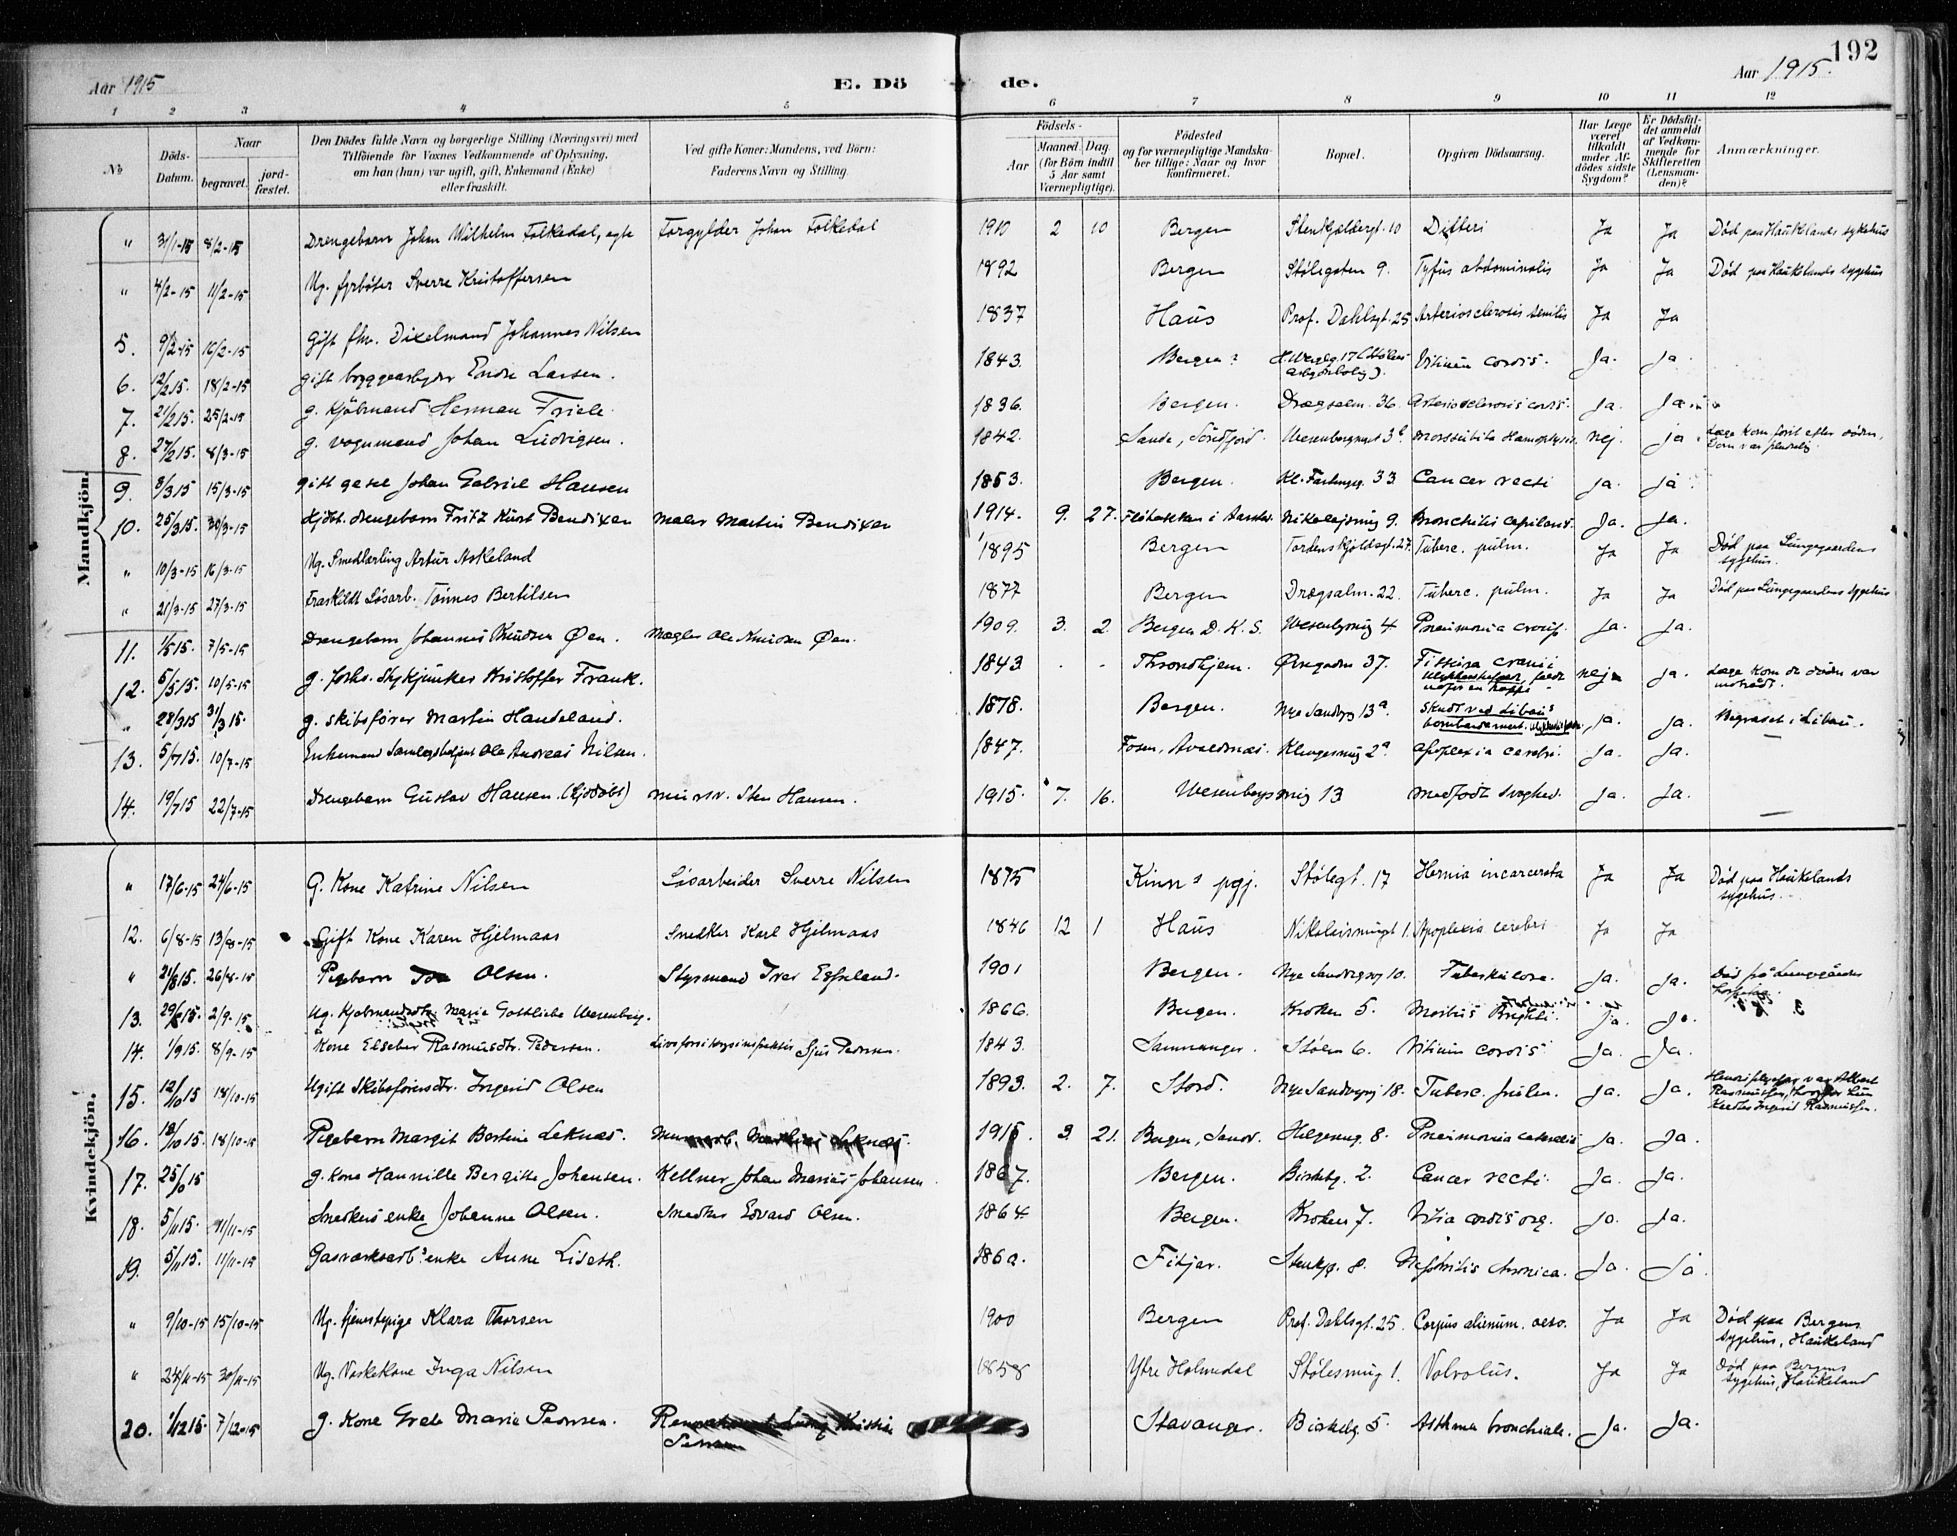 192
Aar 1915 E. Dö de. Aar 1915.
1 2 3 4 5 6 7 8 9 10 11 12
№ Döds-Datum. Naar begravet. jordfæstet. Den Dödes fulde Navn og borgerlige Stilling (Næringsvei) med Tilföiende for Voxnes Vedkommende af Oplysning, om han (hun) var ugift, gift, Enkemand (Enke) eller fraskilt. Ved gifte Koner: Mandens, ved Börn: Faderens Navn og Stilling. Födsels- Aar Maaned. Dag. (for Börn indtil 5 Aar samt Værnepligtige). Födested og for værnepligtige Mandskaber tillige: Naar og hvor konfirmeret. Bopæl. Opgiven Dödsaarsag. Har Læge været tilkaldt under Afdödes sidste Sygdom? Er Dödsfaldet anmeldt af Vedkommende for Skifteretten (Lensmanden)? Anmærkninger.
Mandkjön.
" 31/1-15 8/2-15 Drengebarn Johan Wilhelm Folkedal, egte Forgylder Johan Folkedal 1910 2 10 Bergen Stenkjeldergt. 10 Difteri Ja Ja Død paa Haukelands sykehus
" 4/2-15 11/2-15 Ug. fyrbøter Sverre Kristoffersen 1892 Bergen Stølegaten 9. Tyfus abdominalis Ja Ja Død paa Haukelands sygehus
5. 9/2-15 16/2-15 Gift fhv. Dixelmand Johannes Nilsen 1837 Haus Prof. Dahlsgt. 25 Arteriosclerosis senilis Ja Ja
6. 12/2 15. 18/2-15 gift bryggearbeider Endre Larsen. 1843. Bergen? Vitium cordis. Ja. Ja
7. 21/2 15. 25/2-15 g. Kjøbmand Herman Friele. 1836. Bergen. Drægsalm. 36. Arteriosclerosis cordis. Ja. Ja
8. 27/2 15. 8/3-15 g. vognmand Johan Ludvigsen. 1842. Sande, Söndfjord. Wesenbergsmgt 3 Hæmoptysis nej. ja. Læge kom först efter döden,
9. 8/3 15 15/3-15 gift gesel Johan Gabriel Hansen 1853. Bergen. Kl. 33. Cancer recti ja. ja
10. 25/3 15. 30/3-15 Drengebarn Fritz Kurt Bendixen maler Martin Bendixen 1914. 9. 27. Nikolajsmug 9. Bronchitis capilaris. Ja. Ja.
" 10/3-15 16/3-15 Ug. Smedlærling Artur Askeland 1895 Bergen Tordenskjoldsgt. 27. Tuberc. pulm. Ja Ja Død paa Lungegaardens sygehus.
" 21/3-15 27/3-15 Fraskildt Løsarb. Tönnes Bertilsen 1877 Bergen Drægsalm. 22. Tuberc. pulm. Ja Ja Død paa Lungegaardens sygehus
11. 1/5 15. 7/5-15 Drengebarn Johannes Knudsen Øen. Mægler Ole Knudsen Øen. 1909. 3. 2. Bergen D. K. S. Wesenbgmug 4 Pneumonia croup. Ja. Ja.
12. 5/5 15. 10/5-15 g. Stykjunker Kristoffer Frank. 1843 Throndhjem. Øvregaden 37. Fissura cranii nej ja. Læge kom da döden var indtrådt.
" 28/3 15 31/3 15. g. skibsfører Martin Handeland. 1878. Bergen. Nye Sandvg 13a. Skudt ved Libaus bombardement. ja. ja. Begravet i Libau.
13. 5/7 15. 10/7-15 Enkemand Ole Andreas Nilsen. 1847. Fosen, Avaldnæs. Klingesmug 2a. Apoplexia cerebri. Ja. Ja.
14. 19/7 15 22/7-15 Drengebarn Gustav Hansen (hjdöbt) Sten Hansen. 1915. 7. 16. Wesenbergsmug 13 medfödt svaghed. Ja. Ja.
Kvindekjön.
" 17/6-15 24/6-15 G. Kone Katrine Nilsen Løsarbeider Sverre Nilsen 1875 Kinn's pgj. Stølegt. 17 Hernia incarcerata Ja Ja Død paa Haukelands sygehus.
12. 6/8-15 13/8-15 Gift Kone Karen Hjelmaas Snedker Karl Hjelmaas 1846 12 1 Haus Nikolaismugt 1. Apoplexia cerebri Ja Ja
" 21/8 15. 26/8-15 Pigebarn Olsen. Styrmand Iver 1901 Bergen. Nye Sandvgvg 10. Tuberkulose. Ja. Ja. Död på Lungegårdens
13. 29/ 15. 2/9-15 Ug. Kjøbmandsdtr. Marie Gottliebe Wesenberg. 1866. Bergen. Kroken 5. Morbus Brighti. Ja. Ja
14. 1/9 15. 8/9-15 Kone Elsebet Rasmusdtr. Pedersen. 1843. Samnanger. Stølen 6. Vitium cordis Ja. Ja.
15. 12/10 15 18/10-15 Ugift Skibsförersdtr. Ingerid Olsen 1893. 2. 7. Stord. Nye Sandvgvg 18. Tuberc. pulm. ja. Ja. Ingrid Rasmussen.
16. 12/10 15. 18/10-15 Pigebarn Margit Bertine Leknæs. Leknæs. 1915. 3. 21. Bergen, Helgesmug. 8. Pneumonia Ja. Ja.
17. 25/ 15 g. Kone Hannille Bergithe Johansen. Kellner Johan Marius Johansen 1867. Bergen. Birkebg. 2. Cancer recti. Ja. Ja.
18. 5/11 15. 11/11-15 Snedkers enke Johanne Olsen. Snedker Edvard Olsen. 1864 Bergen. Kroken 7. Vitia cordis org. Jo. Ja.
19. 5/11 15. 11/11-15 Gasværksarb's enke Anne Liseth. 1860. Fitjar. Stenkjg. 8. Nephritis chronica. Ja. Ja
" 9/10-15 15/10-15 Ug. tjenestepige Klara Thorsen 1900 Bergen Prof. Dahlsgt. 25. Corpus alienum. oeso. Ja Ja Død paa Bergens sygehus, Haukeland
" 24/11-15 30/11-15 Ug. Vaskekone Inga Nilsen 1858 Ytre Holmedal Stølesmug 1. Volvolus. Ja Ja Død paa Bergens sygehus, Haukeland
20. 1/12 15. 7/12-15 g. Kone Grete Marie 1864 Stavanger. Birkebg. 5 Asthma bronchiale. Ja. Ja.